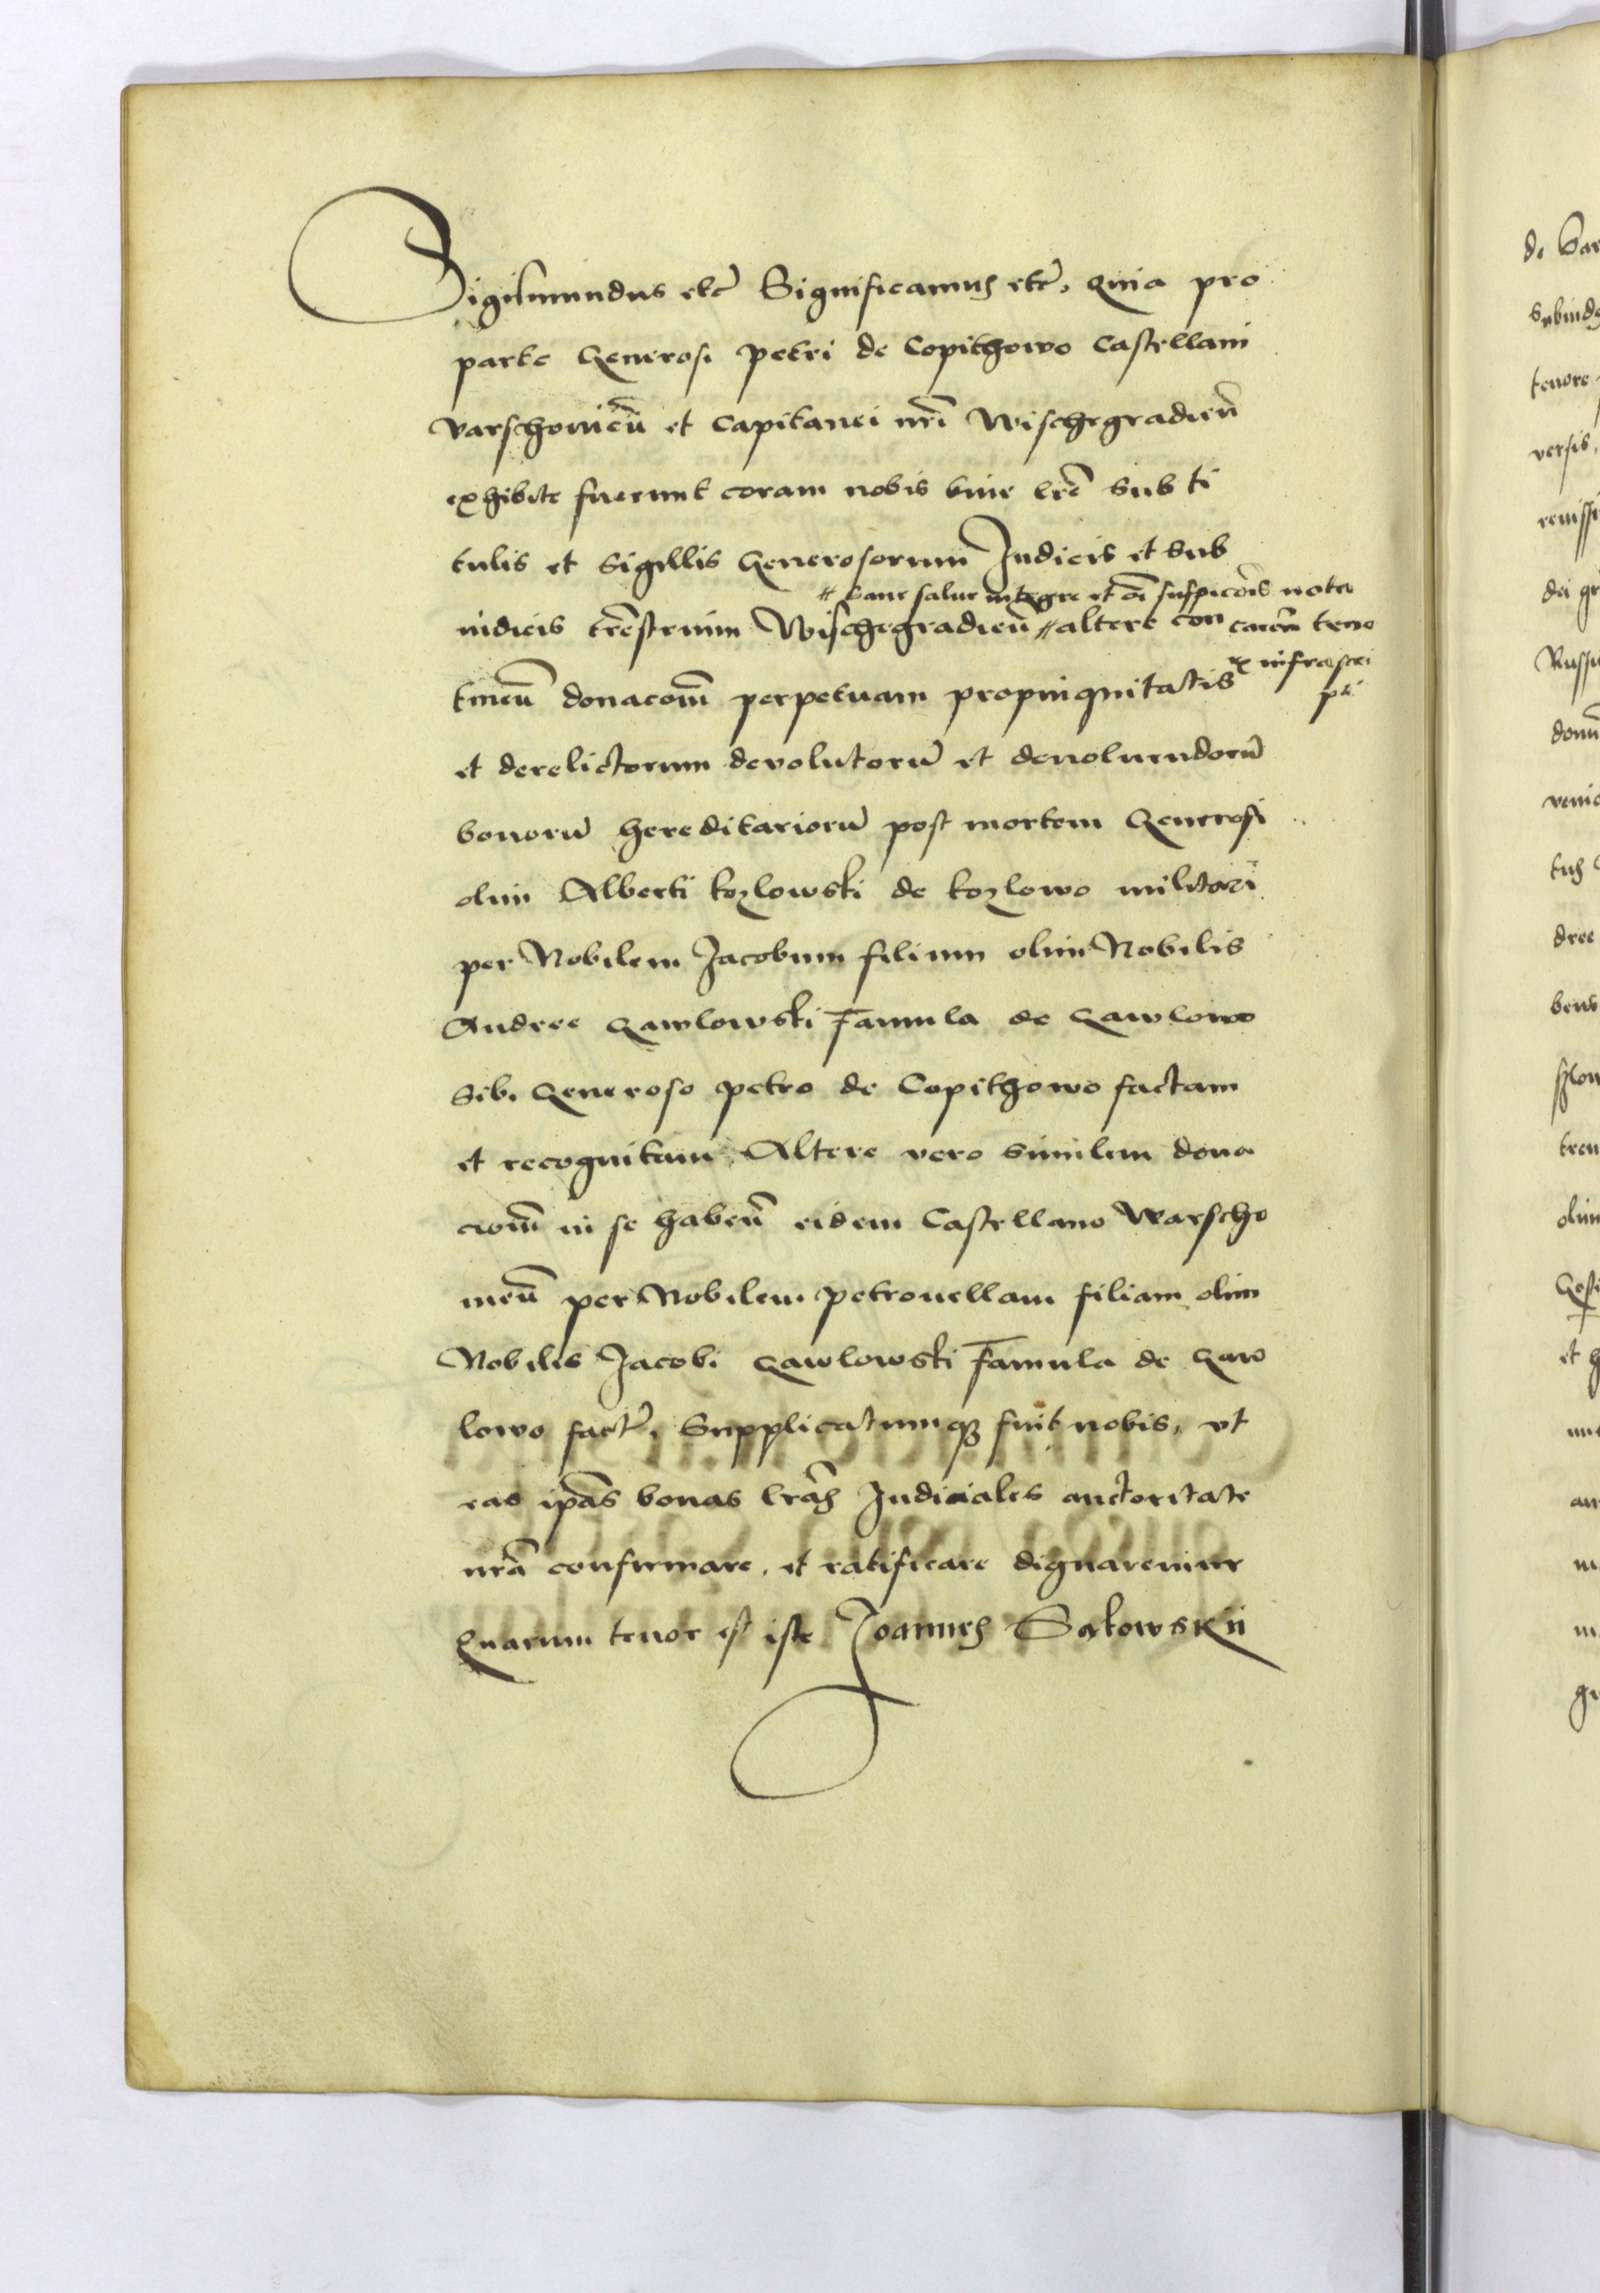 Sigismundus etc Significamus etc, Quia pro
parte Generosi Petri de Copithowo Castellani
Varschouien et Capitanei nri Wischegradien
exhibite fuerunt coram nobis bine lre sub ti
tulis et sigillis Generosorum Judicis et Sub
// sane salue integre et oi suspicois nota
iudicis trestrium Wischegradien // altere con caren teno
x infrascri
pti
tinen donacom perpetuam propinquitatis
et derelictorum devolutoru et deuoluendoru
bonoru hereditarioru post mortem Generosi
olim Alberti kozlowski de kozlowo
per Nobilem Jacobum filium olim Nobilis
Andree Gawlowski Famula de Gawlowo
Sibi Generoso Petro de Copithowo factam
et recognitam, Altere vero similem dona
ciom in se haben eidem Castellano Warscho
uien per Nobilem Petronellam filiam olim
Nobilis Jacobi Gawlowski Famula de Gaw
lowo fact, Supplicatumq fuit nobis, vt
eas ipas bonas lras Judiciales auctoritate
nra confirmare, et ratificare dignaremur
Quarum tenor est iste Joannes
de
subiud
tenore
versis,
dei gr
Russi
tus
dree
bens
olim
et